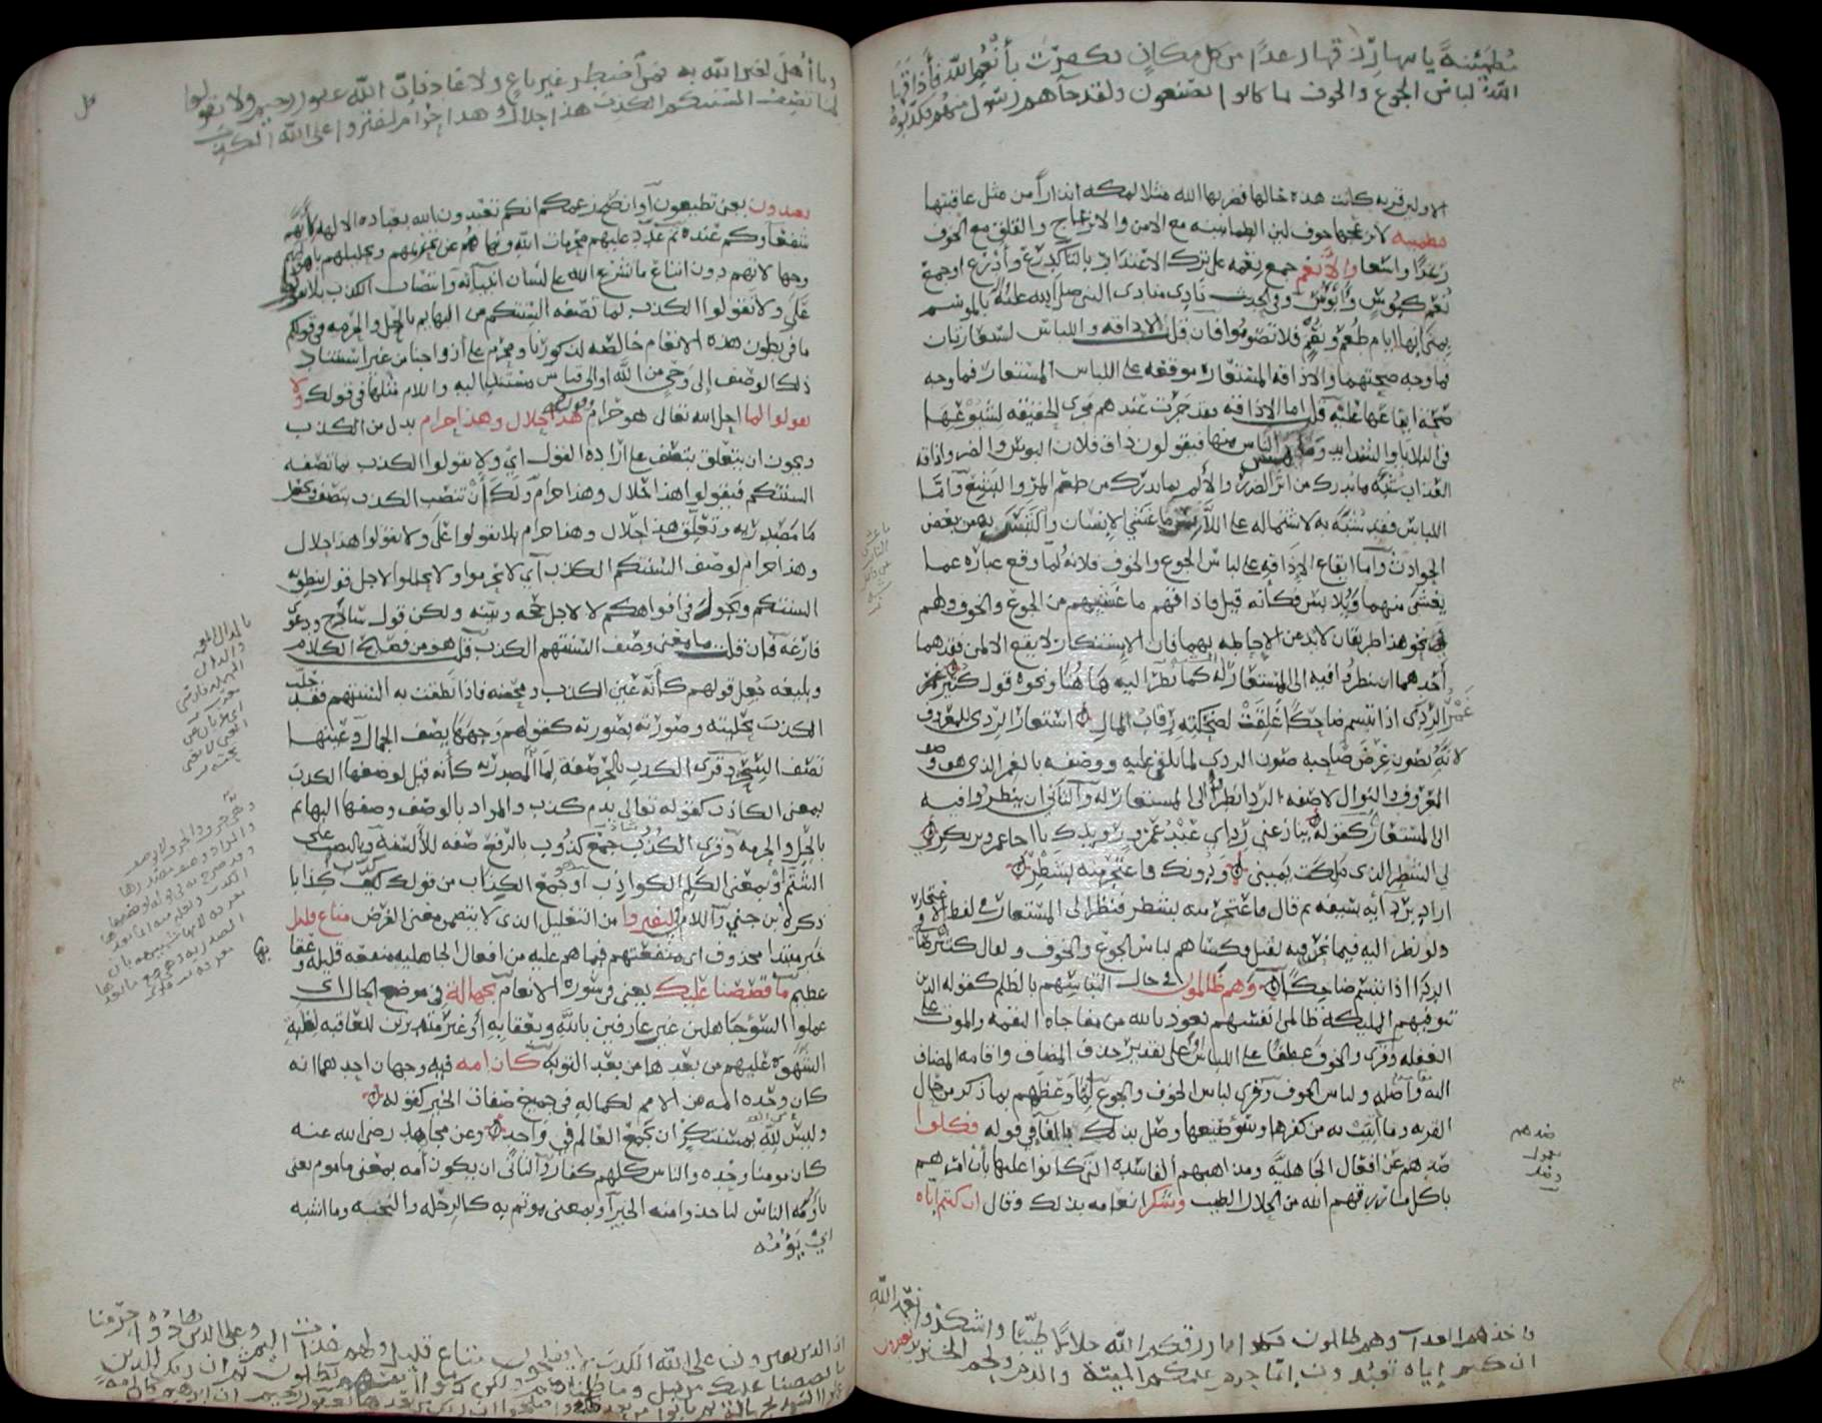 مطمئنة يأتيها رزقها رغدا من كل مكان فكفرت بأنعم الله فأذاقها
الله لباس الجوع والخوف بما كانوا يصنعون ولقد جاءهم رسول منهم فكذبوه
الاولين قريه كانت هذه حالها فضربها الله مثلا لمكه انذارا من مثل عاقبتها
مطمينه لا يزعجها خوف لان الطمانينه مع الامن والانزعاج والقلق مع الخوف
رغدا واسعا والانعم جمع نعمه على ترك الاعتداد بالتا كدرع وادرع او جمع
نعم كبوس وابوس وفي الحديث نادى منادى النبي صلى الله عليه بالموسم
بمنى انها ايام طعم ونعم فلا تصوموا فان قلت الاذاقه واللباس استعارتان
فما وجه صحتهما والاذاقه المستعاره موقعه على اللباس المستعار فما وجه
صحه ايقاعها عليه قلت اما الاذاقه فقد جرت عندهم مجرى الحقيقه لشيوعها
في البلايا والشدايد وما يمس الناس منها فيقولون ذاق فلان البوس والضر واذاقه
العذاب شبه ما يدرك من اثر الضرر والالم بما يدرك من طعم المر والبشع واما
اللباس فقد شبه به لاشتماله على اللابس ما غشي الانسان والتبس به من بعض
الحوادث واما ايقاع الاذاقه على لباس الجوع والخوف فلانه لما وقع عباره عما
يغشى منهما ويلابس فكأنه قيل فاذاقهم ما غشيهم من الجوع والخوف ولهم
في نحو هذا طريقان لابد من الاحاطه بهما فان الاستنكار لا يقع الا لمن فقدهما
احدهما ان ينظروا فيه الى المستعار له كما نظر اليه هاهنا ونحوه قول كثير
غمر الرداء اذا تبسم ضاحكا غلقت لضحكته رقاب المال استعار الردى للمعروف
لانه يصون عرض صاحبه صون الردى لما يلقى عليه ووصفه بالغمر الذي هو وصف
المعروف والنوال لا صفه الردا نظرا الى المستعار له والثاني ان ينظروا فيه
الى المستعار كقوله ينازعني رداي عبد عمرو رويدك يا اخا عمرو بن بكر
لي الشطر الذي ملكت يميني ودونك فاعتجر منه بشطر
اراد بردائه سيفه ثم قال فاعتجر منه بشطر فنظر الى المستعار في لفظ الاعتجار
ولو نظر اليه فيما نحن فيه لقيل فكساهم لباس الجوع والخوف ولقال كثير ضافي
الردا اذا تبسم ضاحكا وهم ظالمون في حال التباسهم بالظلم كقوله الذين
تتوفيهم المليكة ظالمى انفسهم نعوذ بالله من مفاجاه النقمه والموت على
الغفله وقرى والخوف عطفا على اللباس او على تقدير حذف المضاف واقامه المضاف
اليه مقامه اصله ولباس الخوف وقرى لباس الخوف والجوع لما وعظهم بما ذكر من حال
القريه وما اتيت به من كفرها وسوء صنيعها وصل بذلك بالفا في قوله فكلوا
صدهم عن افعال الجاهليه ومذاهبهم الفاسده التي كانوا عليها بان امرهم
باكل ما رزقهم الله من الحلال الطيب وشكر انعامه بذلك وقال ان كنتم اياه
صدهم
فأخذهم العذاب وهم ظالمون فكلوا مما رزقكم الله حلالا طيبا واشكروا نعمة الله
ان كنتم إياه تعبدون إنما حرم عليكم الميتة والدم ولحم الخنزير
وما أهل لغير الله به فمن اضطر غير باغ ولا عاد فإن الله غفور رحيم ولا تقولوا
لما تصف السنتكم الكذب هذا حلال وهذا حرام لتفتروا على الله الكذب
تعبدون يعني تطيعون او ان صح زعمكم انكم تعبدون الله بعباده الالهه لانها
شفعاوكم عنده ثم عدد عليهم محرمات الله ونهاهم عن تحريمهم وتحليلهم باهوائهم
وجهالاتهم دون اتباع ما شرع الله على لسان انبيائه وانتصاب الكذب بلا تقولوا
على ولا تقولوا الكذب لما تصفه السنتكم من البهايم بالحل والحرمه وقولكم
ما في بطون هذه الانعام خالصه لذكورنا ومحرم على ازواجنا من غير استناد
ذلك الوصف الى وحي من الله او الى قياس مستند اليه واللام مثلها في قولك ولا
تقولوا لما احل الله تعالى هو حرام وقوله هذا حلال وهذا حرام بدل من الكذب
ويجوز ان يتعلق بتصف على ارادة القول اي ولا تقولوا الكذب بما تصفه
السنتكم فتقولوا هذا حلال وهذا حرام ولك ان تنصب الكذب بتصف وتجعل
ما مصدريه وتعلق هذا حلال وهذا حرام بلا تقولوا على ولا تقولوا هذا حلال
وهذا حرام لوصف السنتكم الكذب اي لا تحرموا ولا تحللوا لاجل قول ينطق به
السنتكم ويجول في افواهكم لا لاجل حجه وبينه ولكن قول ساذج ودعوى
فارغه فان قلت ما معنى وصف السنتهم الكذب قلت هو من فصيح الكلام
وبليغه جعل قولهم كانه عين الكذب ومحضه فاذا نطقت به السنتهم فقد حلت
الكذب بحليته وصورته بصورته كقولهم وجهها يصف الجمال وعينها
تصف السحر وقرى الكذب بالجر صفة لما المصدريه كانه قيل لوصفها الكذب
بمعنى الكاذب كقوله تعالى بدم كذب والمراد بالوصف وصفها البهايم
بالحل والحرمه وقرى الكذب جمع كذوب بالرفع صفه للالسنه وبالنصب على
الشتم او بمعنى الكلم الكواذب او جمع الكذاب من قولك كذب كذابا
ذكره ابن جني واللام في لتفتروا من التعليل الذي لا يتضمن معنى الغرض متاع قليل
خبر مبتدا محذوف اي منفعتهم فيما هم عليه من افعال الجاهليه منفعه قليله وعقابها
عظيم ما قصصنا عليك يعني في سوره الانعام بجهالة في موضع الحال اي
عملوا السوء جاهلين غير عارفين بالله وبعقابه او غير متدبرين للعاقبه لغلبة
الشهوه عليهم من بعدها من بعد التوبه كان امه فيه وجهان احدهما انه
كان وحده امه من الامم لكماله في جميع صفات الخير كقوله
وليس لله بمستنكر ان يجمع العالم في واحد وعن مجاهد رضي الله عنه
كان مومنا وحده والناس كلهم كفار والثاني ان يكون امه بمعنى ماموم يعني
يأمه الناس لياخذوا منه الخير او بمعنى موتم به كالرحله والنخبه وما اشبه
ان الذين يفترون على الله الكذب لا يفلحون متاع قليل ولهم عذاب اليم وعلى الذين هادوا حرمنا
ما قصصنا عليك من قبل وما ظلمناهم ولكن كانوا انفسهم يظلمون ثم ان ربك للذين